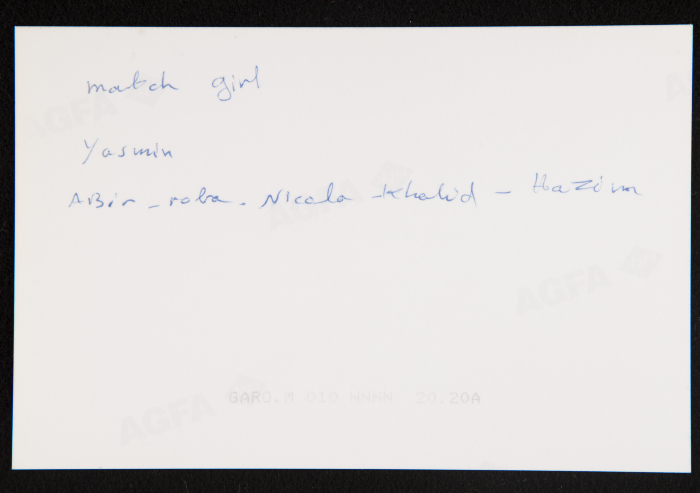 match girl
AGFA
AGFA
Yasmin
ABir - roba - Nicola - Khalid - Hazim
AGFA
AGFA
GARO.M 010 NNNN 20.20A